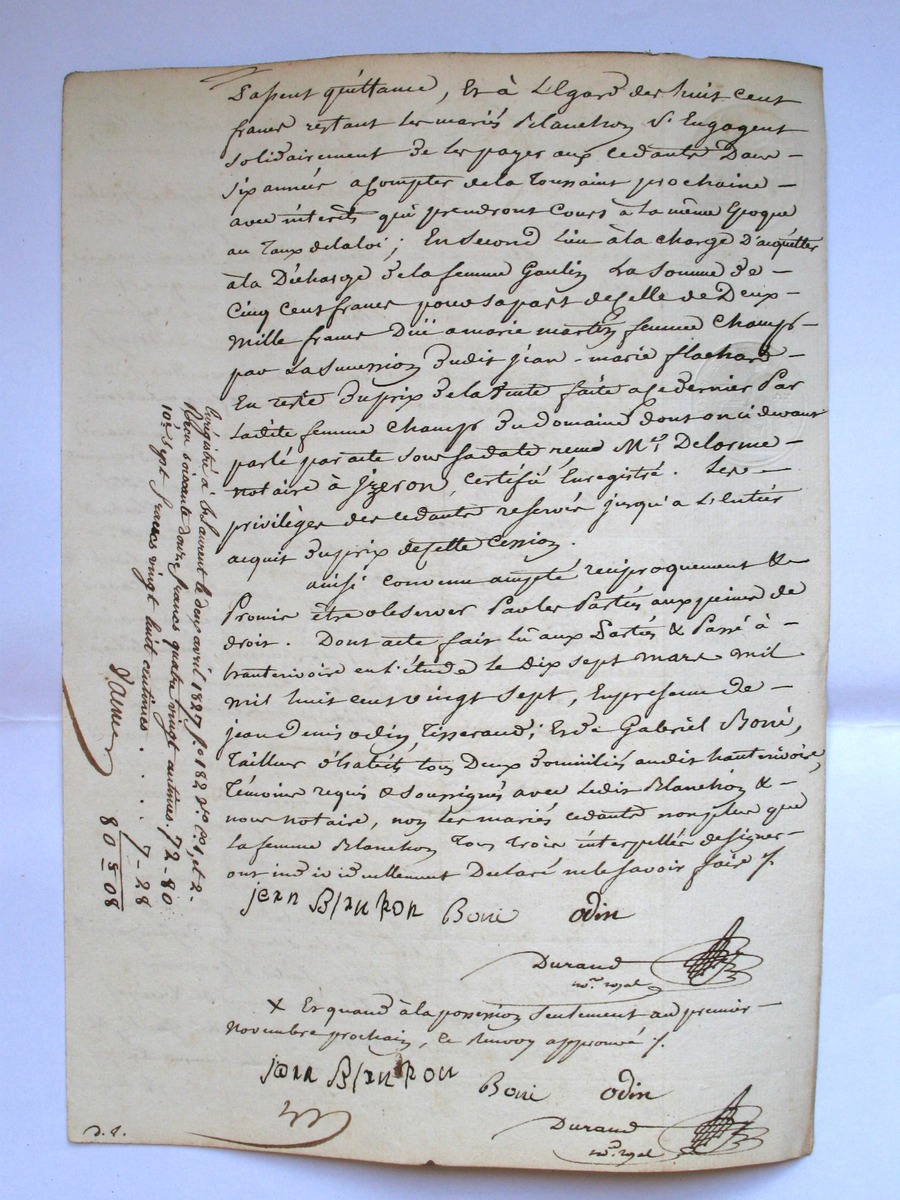 quittance, Et à L'Egard des huit cent
francs restant les mariés Blanchon S'Engagent
solidairement de les payer aux cedants Dans
six années acompter de la Toussaint prochaine
avec intérêts qui prendront cours à la même Epoque
au Taux de la loi; En second Lieu à la charge D'acquitter
à la Décharge de la femme Goulin La Somme De
Cinq cent francs pour sa part de celle de Deux
mille francs Düe a marie martin femme Champs
par La succession dudit jean-marie flachard
En reste du prix de la vente faite a ce dernier Par
Ladite femme Champs du Domaine dont on ci devant
parlé par acte sous sa date reçue Me Delorme
notaire à Izeron, certifié Enregistré. Les
privilèges des cedants reservés jusqu'a L'Entier
acquit du prix de cette Cession.
ainsi convenu accepté reciproquement &
Promis être observer Par les Parties aux peines de
droit. Dont acte fait lû aux Parties & Passé à
hauterivoire en L'étude le dix sept mars mil
mil huit cent vingt sept, En presence de
jean denis odin, Tisserand; Et de Gabriel Boni,
Tailleur d'habits tous Deux Domiciliés audit hauterivoire,
Témoins requis & soussignés avec Ledit Blanchon &
nous notaire, non les mariés cedants non plus que
La femme Blanchon Tous Trois interpellés de signer
ont individuellement Declaré ne le savoir faire ./.
jean Blanchon Boni odin
Durand
nre royal
X Et quand à la possession seulement au premier
Novembre prochain, le Renvoi approuvé ./.
jean Blanchon
Boni odin
Durand
nre royal
Enrégistré à St Laurent le deux avril 1827 fo 182 Vo C. 1, et 2.
Reçu soixante douze francs quatre vingt centimes. 72-80
10e sept francs vingt huit centimes . . . . 7-28
80 08